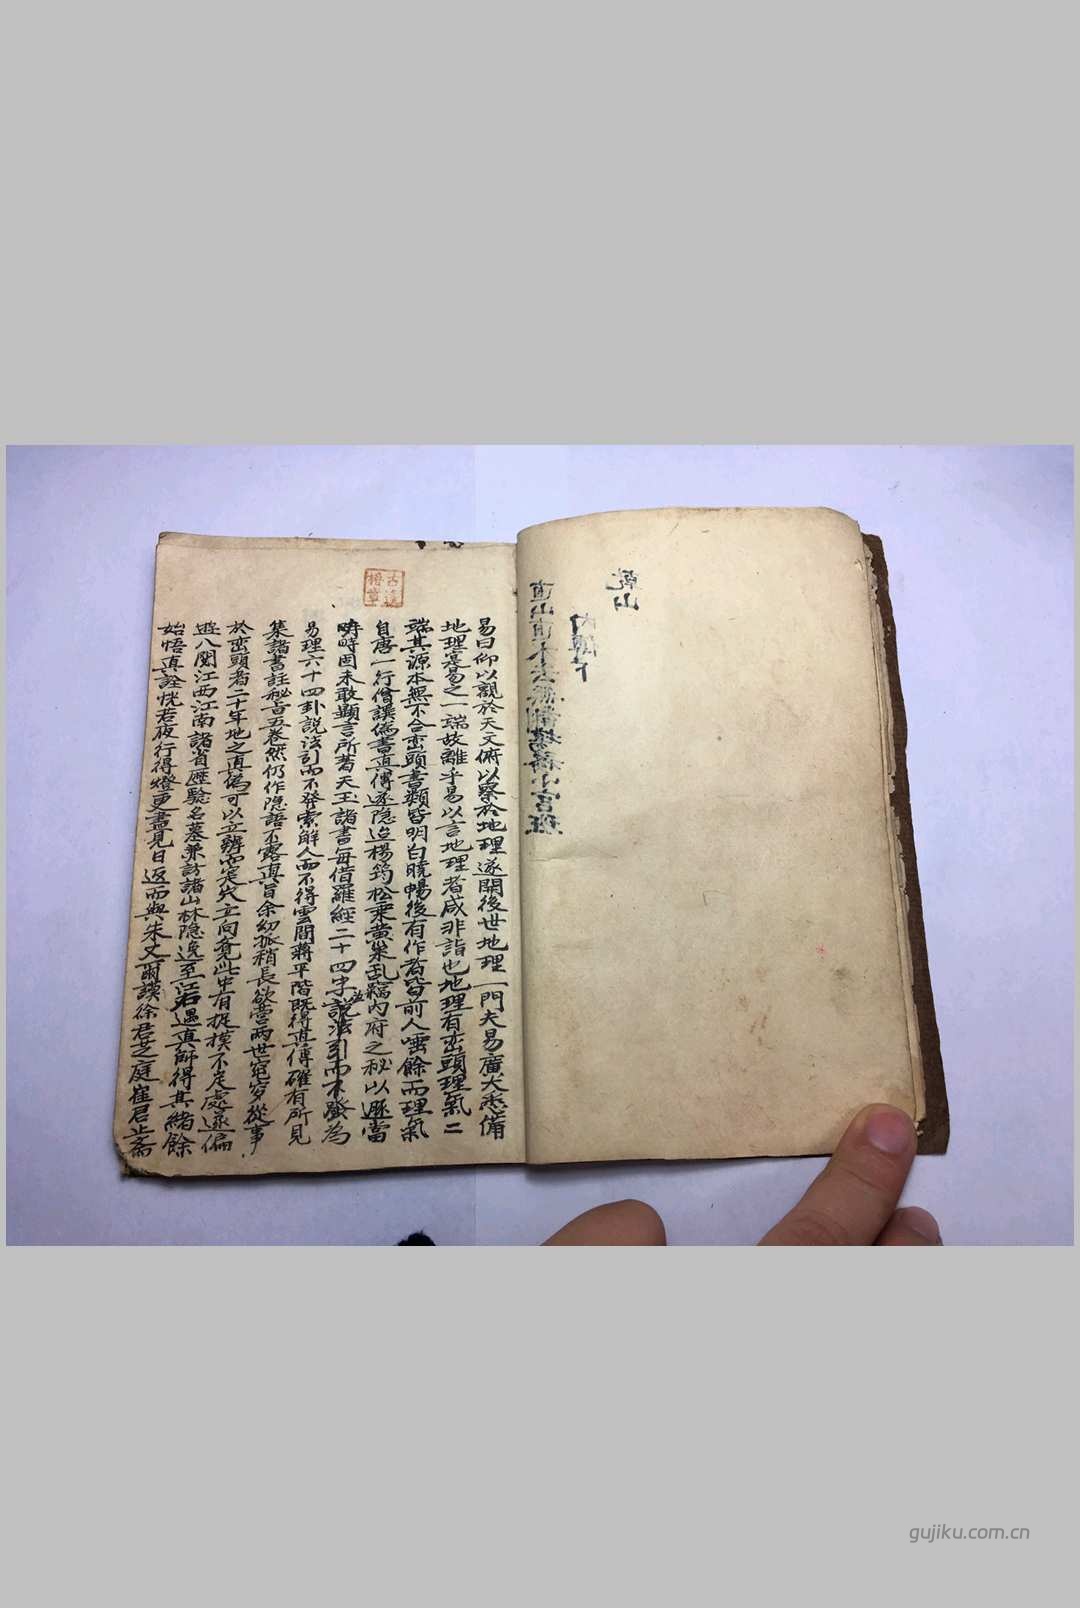 乾山
直山直
易曰仰以觀於天文俯以察於地理遂開後世地理一門夫易廣大悉備
地理寔易之一端故離乎易以言地理者咸非詣也地理有巒頭理氣二
端其源本無不合巒頭書類皆明白曉暢後有作者皆前人唾餘而理氣
自唐一行僧譔偽書真傳遂隐迨楊筠松乗黄巢乱竊内府之秘以遯當
時時固未敢顯言所著天玉諸書每借羅經二十四字說法引而不發為
易理六十四卦説法引而不發索解人而不得雲間蔣平階既得真傳確有所見
集諸書註秘旨五卷然仍作隐語不露真旨余幼孤稍長欲營两世窀穸從事
於巒頭者二十年地之真偽可以立辨而定穴立向竟些中有捉摸不定處遂偏
遊八閩江西江南諸省歷驗名墓兼訪諸山林隐逸至江右遇真師得其緒餘
始悟真詮恍若夜行得燈更盡見日返而與朱丈爾謨徐君芝庭崔君止齋
gujiku.com.cn